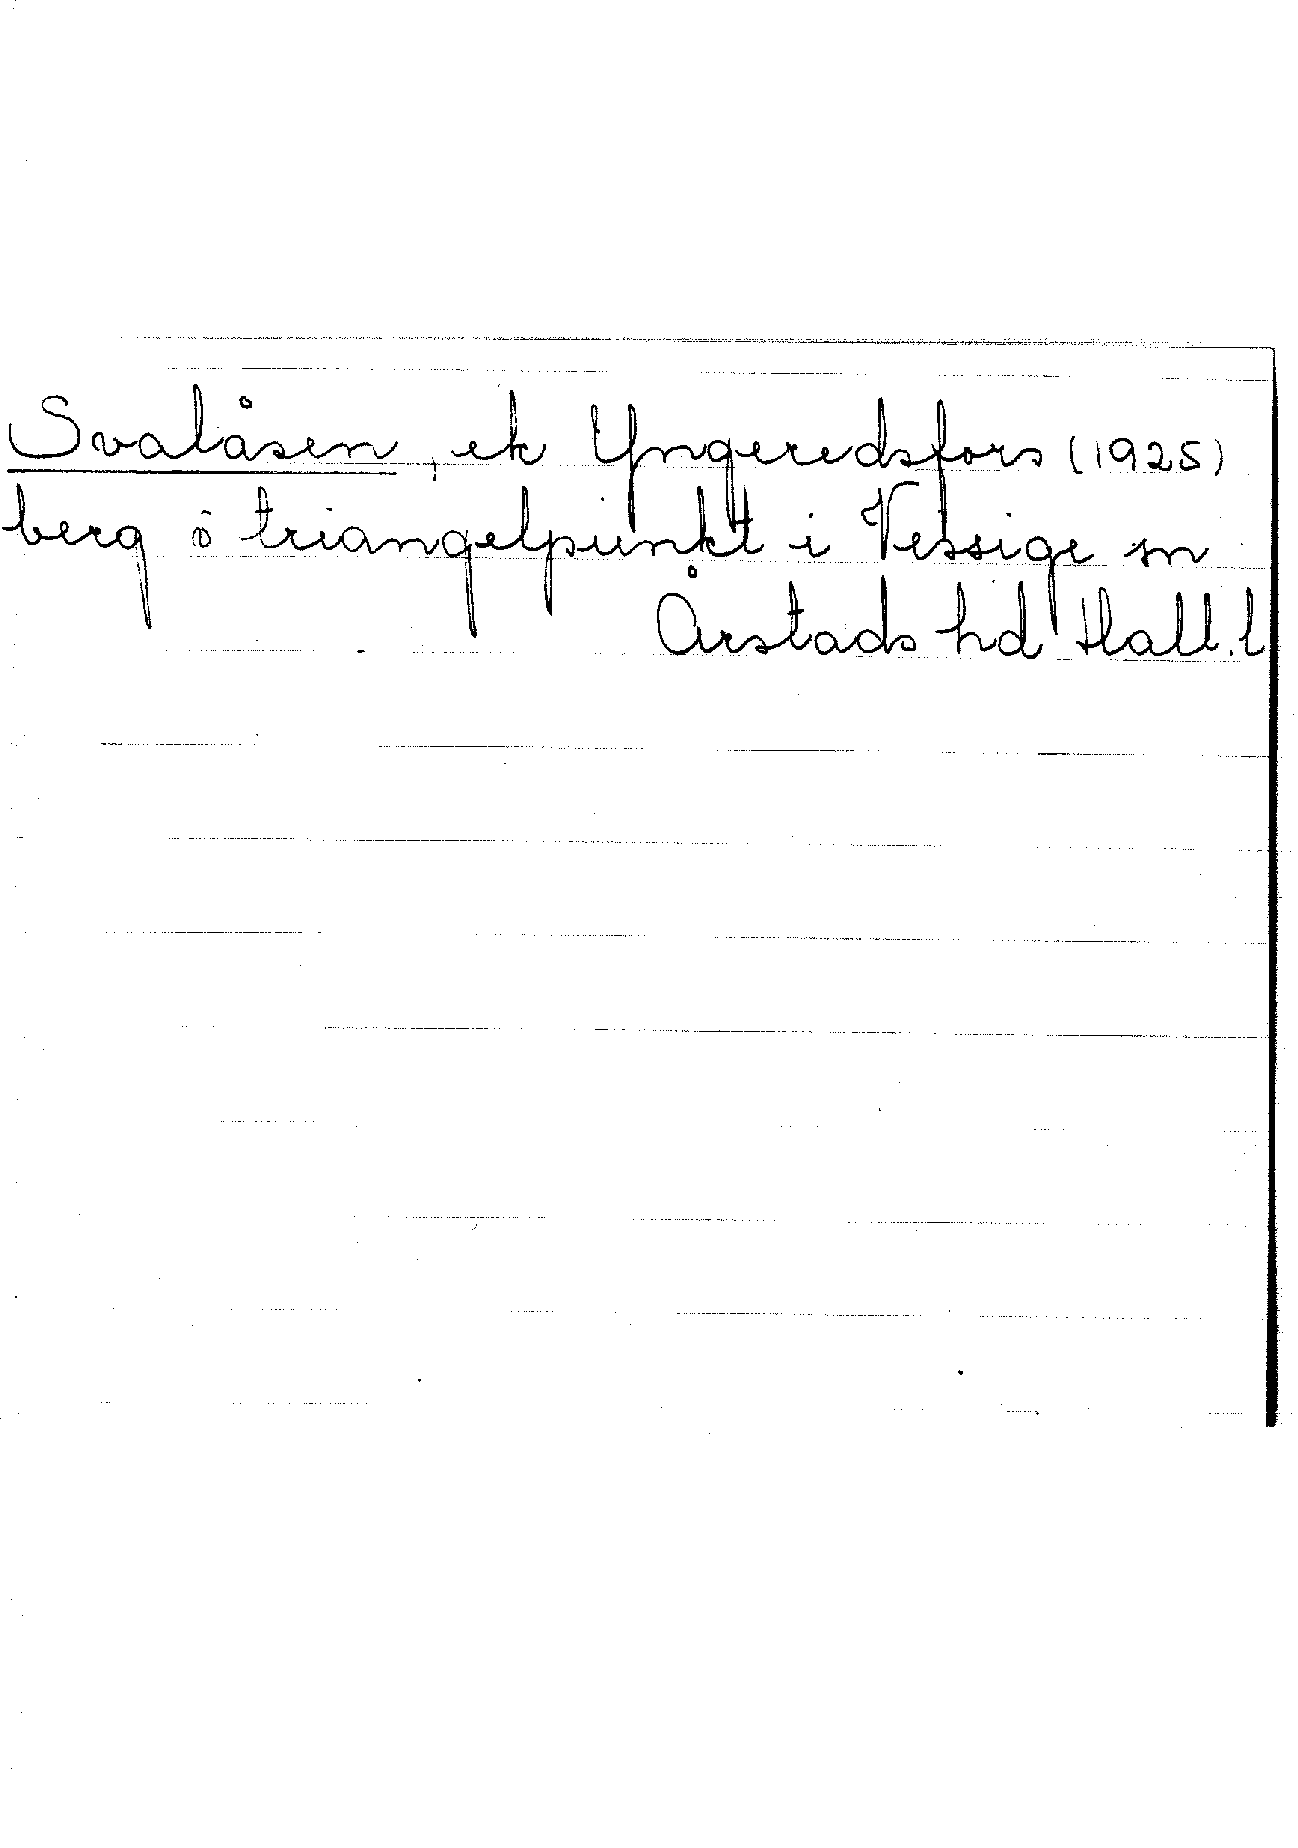 Svalåsen, ek Yngeredsfors (1925)
berg ö triangelpunkt i Vessige sn
Årstads hd Hall. l